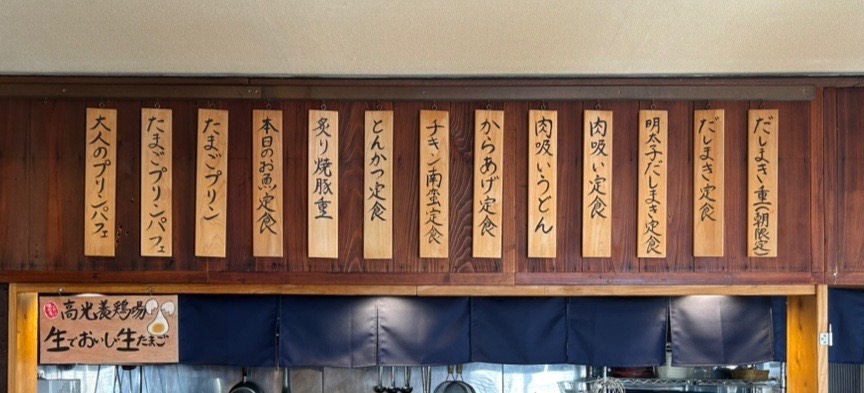 だしまき重(朝限定)
だしまき定食
明太子だしまき定食
肉吸い定食
肉吸いうどん
からあげ定食
チキン南蛮定食
とんかつ定食
炙り焼豚重
本日のお魚定食
たまごプリン
たまごプリンパフェ
大人のプリンパフェ
高光養鶏場
生でおいしい生たまご